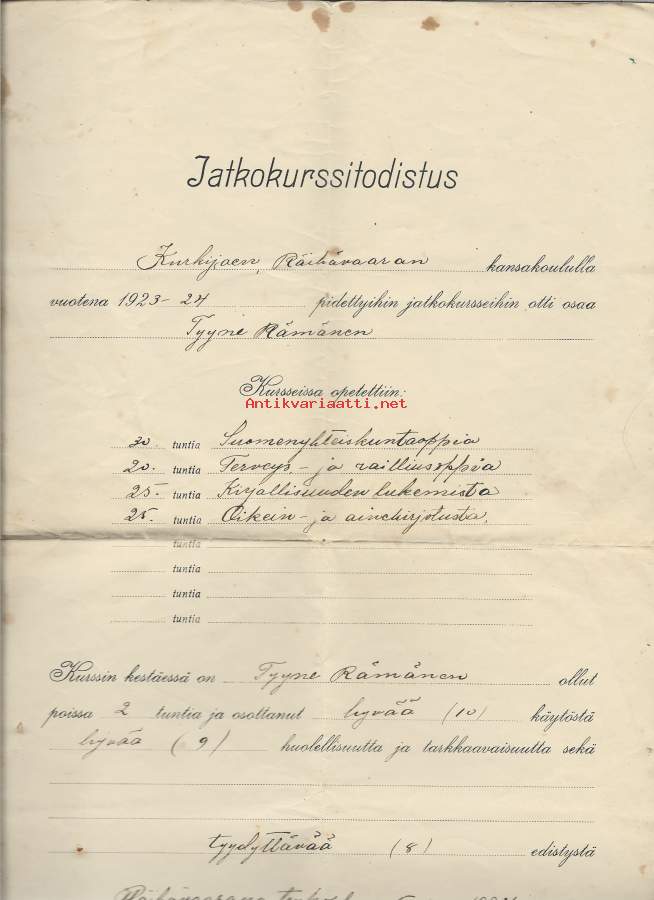 Jatkokurssitodistus
Kurkijoen, Räihävaaran kansakoululla
vuotena 1923-24 pidettyihin jatkokursseihin otti osaa
Tyyne Rämänen
Kursseissa opetettiin:
Antikvariaatti.net
30. tuntia Suomenyhteiskuntaoppia
20. tuntia Terveys- ja raittiusoppia
25. tuntia Kirjallisuuden lukemista
25. tuntia Oikein- ja ainekirjotusta.
tuntia
tuntia
tuntia
tuntia
Kurssin kestäessä on Tyyne Rämänen ollut
poissa 2 tuntia ja osottanut hyvää (10) käytöstä
hyvää (9) huolellisuutta ja tarkkaavaisuutta sekä
tyydyttävää (8) edistystä